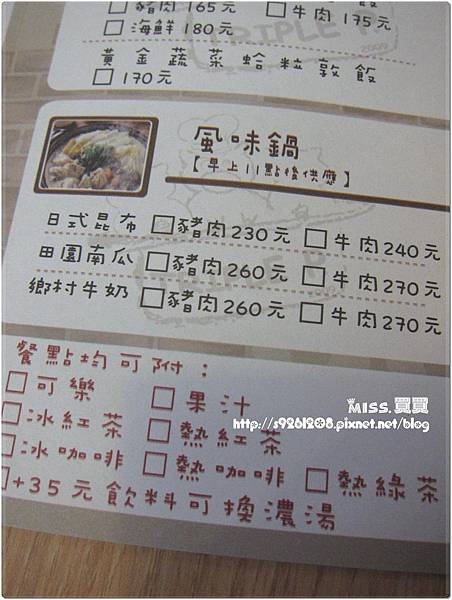 豬肉165元 □牛肉175元
□海鮮180元
TRIPLE
黃金蔬菜蛤粒敦飯
□170元
風味鍋
【早上11點後供應】
日式昆布 □豬肉230元 □牛肉240元
田園南瓜 □豬肉260元 □牛肉270元
鄉村牛奶 □豬肉260元 □牛肉270元
餐點均可附：
□可樂 □果汁
□冰紅茶 □熱紅茶
□冰咖啡 □熱咖啡 □熱綠茶
□+35元飲料可換濃湯
MISS.買買
http://s9261208.pixnet.net/blog